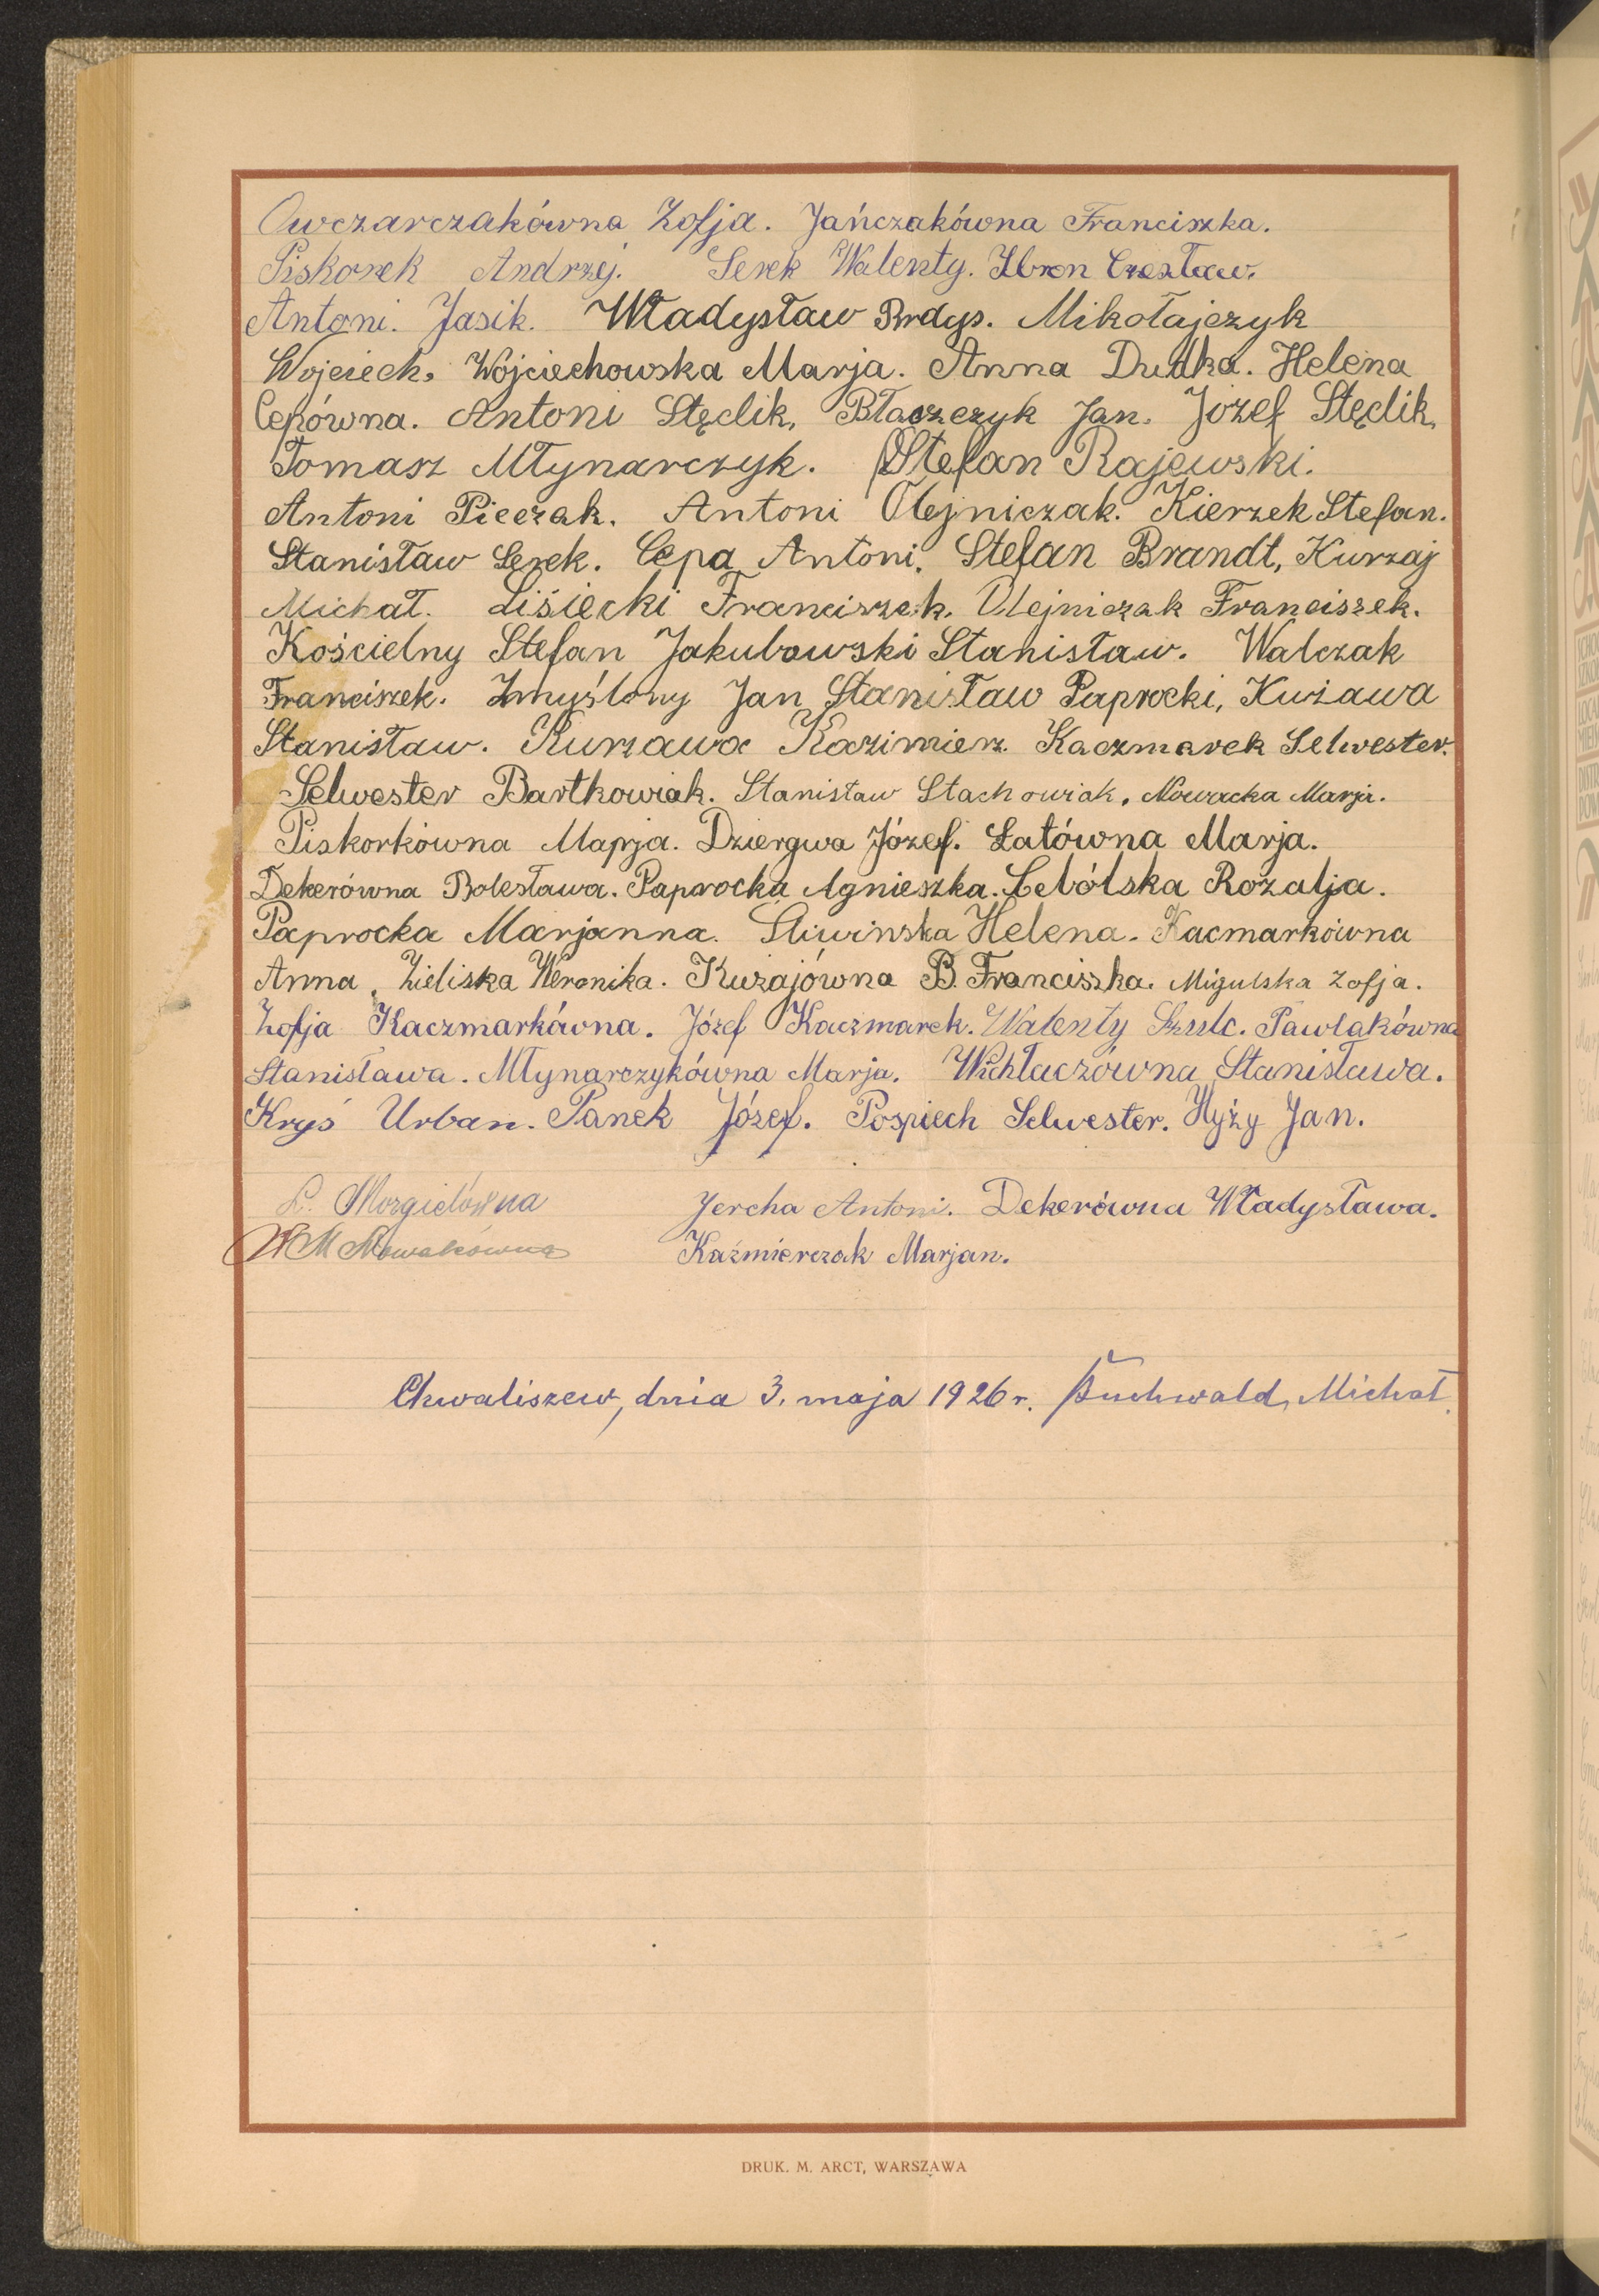 Owczarczakówna Zofja. Jańczakówna Franciszka.
Piskorek Andrzej. Serek Walenty. Czesław.
Antoni. Jasik. Władysław Brdys. Mikołajczyk
Wojciech, Wojciechowska Marja. Anna Dudka. Helena
Cepówna. Antoni Stęclik, Błaszczyk Jan. Józef Stęclik,
Tomasz Młynarczyk. Stefan Rajewski.
Antoni Pieczak. Antoni Olejniczak. Kierzek Stefan.
Stanisław Serek. Cepa Antoni, Stefan Brandt, Kurzaj
Michał. Liśiecki Franciszek, Olejniczak Franciszek.
Kościelny Stefan Jakubowski Stanisław. Walczak
Franciszek. Zmyślony Jan Stanisław Paprocki, Kużawa
Stanisław. Kurzawa Kazimierz Kaczmarek Selwester.
Selwester Bartkowiak. Stanisław Stachowiak, Nowacka Marja.
Piskorkówna Marja. Dziergwa Józef. Łatówna Marja.
Dekerówna Bolesława. Paprocka Agnieszka. Lebólska Rozalja.
Paprocka Marjanna. Śliwinska Helena. Kacmarkówna
Anna, Zieliska Weronika. Kużajówna B. Franciszka. Migulska Zofja.
Zofja Kaczmarkówna. Józef Kaczmarek. Walenty Szulc. Pawlakówna
Stanisława. Młynarczykówna Marja. Wichłaczówna Stanisława.
Kryś Urban. Panek Józef. Pospiech Selwester. Hyży Jan.
L. Morgielówna Jercha Antoni. Dekerówna Władysława.
M Nowakówna Kaźmierczak Marjan.
Chwaliszew, dnia 3. maja 1926 r. Buchwald, Michał.
DRUK. M. ARCT, WARSZAWA